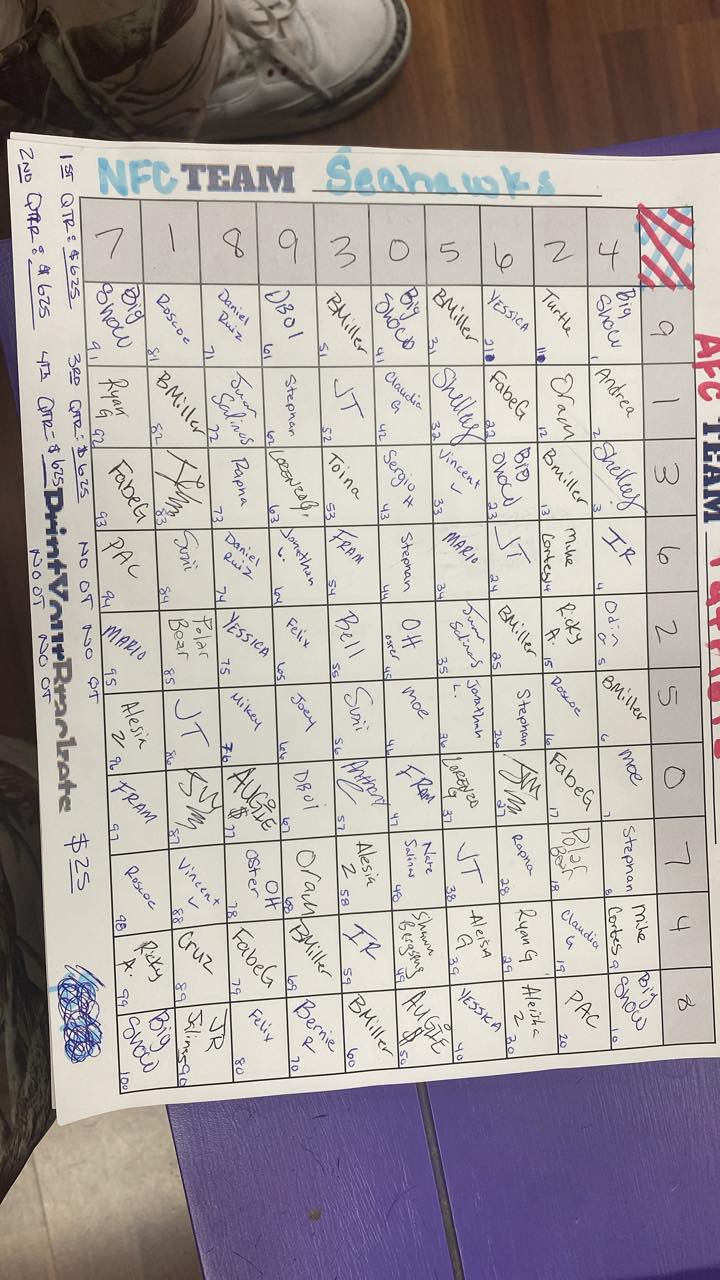 AFC TEAM
9 1 3 6 2 5 0 7 4 8
4 Big Show 1 Andrea 2 Shelley 3 IR 4 Odin O 5 BMiller 6 Moe 7 Stephan 8 Mike Cortes 9 Big Show 10
2 Turtle 11 Oram 12 BMiller 13 Mike Cortes 14 Ricky A. 15 Roscoe 16 FabeG 17 Polar Bear 18 Claudia G 19 PAC 20
6 YESSICA 21 FabeG 22 Big Show 23 JT 24 BMiller 25 Stephan 26 27 Rapha 28 Ryan G 29 Aleisha Z 30
5 BMiller 31 Shelley 32 Vincent L 33 MARIO 34 Juan Salinas 35 Jonathan L. 36 LORENZO G 37 JT 38 Aleisha G 39 YESSICA 40
0 Big Show 41 Claudia G 42 Sergio H 43 Stephan 44 OH oster 45 Moe 46 FRAM 47 Nate Salinas 48 Shawn 49 AUGIE $ 50
3 BMiller 51 JT 52 Toina 53 FRAM 54 Bell 55 Suzii 56 Anthony 57 Alesia Z 58 IR 59 BMiller 60
9 DBOI 61 Stephan 62 LORENZO G. 63 Jonathan L. 64 Felix 65 Joey 66 DBoi 67 Oram 68 BMiller 69 Bernie R 70
8 Daniel Ruiz 71 Juan Salinas 72 Rapha 73 Daniel Ruiz 74 YESSICA 75 Mikey 76 AUGIE $ 77 OSTER OH 78 FabeG 79 Felix 80
1 Roscoe 81 BMiller 82 83 Suzii 84 Polar Bear 85 JT 86 87 Vincent L 88 Cruz 89 JR Salinas 90
7 Big Show 91 Ryan G 92 FabeG 93 PAC 94 MARIO 95 Alesia Z 96 FRAM 97 Roscoe 98 Ricky A. 99 Big Show 100
NFC TEAM Seahawks
1ST QTR: $625 3RD QTR: $625 NO OT NO OT $25
2ND QTR: $625 4TH QTR- $625 NO OT NO OT